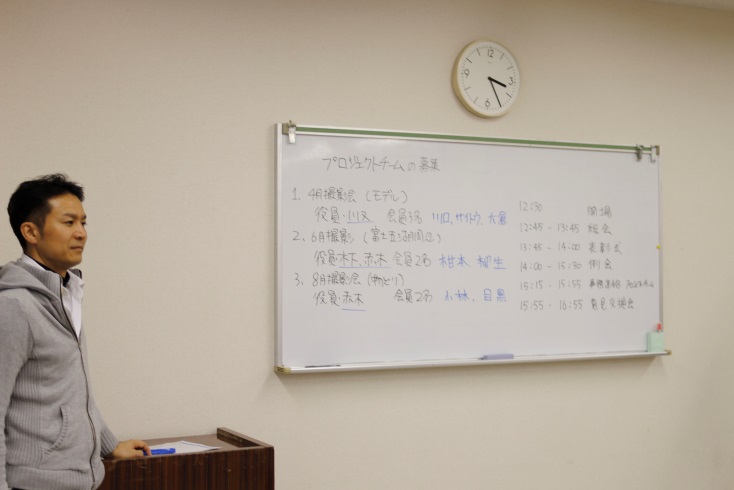 プロジェクトチームの募集
1. 4月撮影会 (モデル)
役員・川又 会員3名 川口、サイトウ、大倉
2. 6月撮影 (富士五湖周辺)
役員・林、赤木 会員2名 柑本 柳生
3. 8月撮影会 (物どり)
役員・赤木 会員2名 小林、目黒
12:30 開場
12:45 - 13:45 総会
13:45 - 14:00 表彰式
14:00 - 15:30 例会
15:15 - 15:55
15:55 - 16:55 意見交換会
12
6